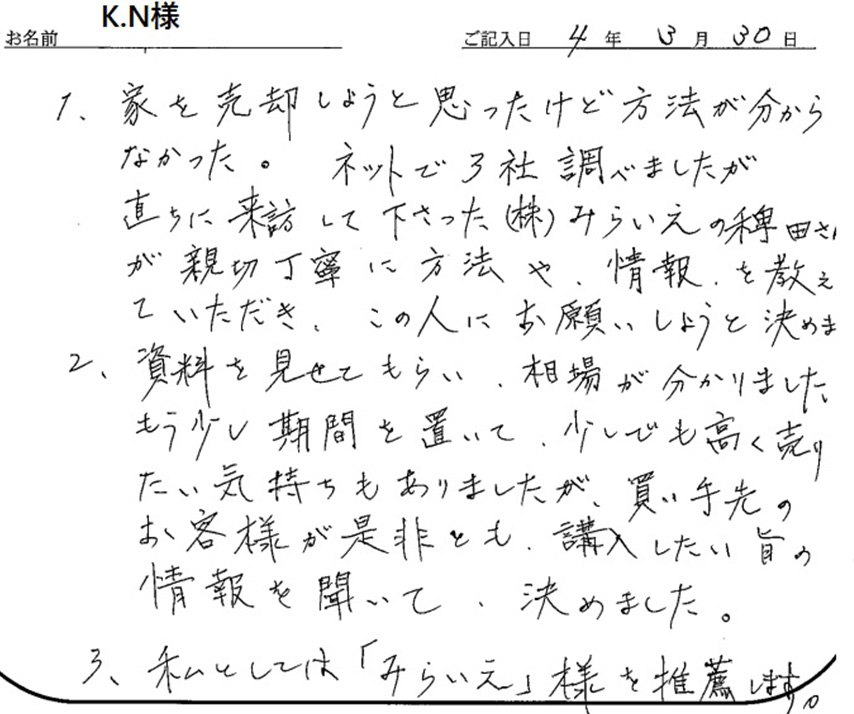 お名前 K.N様 ご記入日 4年 3月 30日
1、家を売却しようと思ったけど方法が分から
なかった。 ネットで3社調べましたが
直ちに来訪して下さった(株)みらいえの稗田さん
が親切丁寧に方法や、情報、を教え
ていただき、この人にお願いしようと決めま
2、資料を見せてもらい、相場が分かりました、
もう少し期間を置いて、少しでも高く売り
たい気持ちもありましたが、買い手先の
お客様が是非とも、講入したい旨の
情報を聞いて、決めました。
3、私としては「みらいえ」様を推薦します。